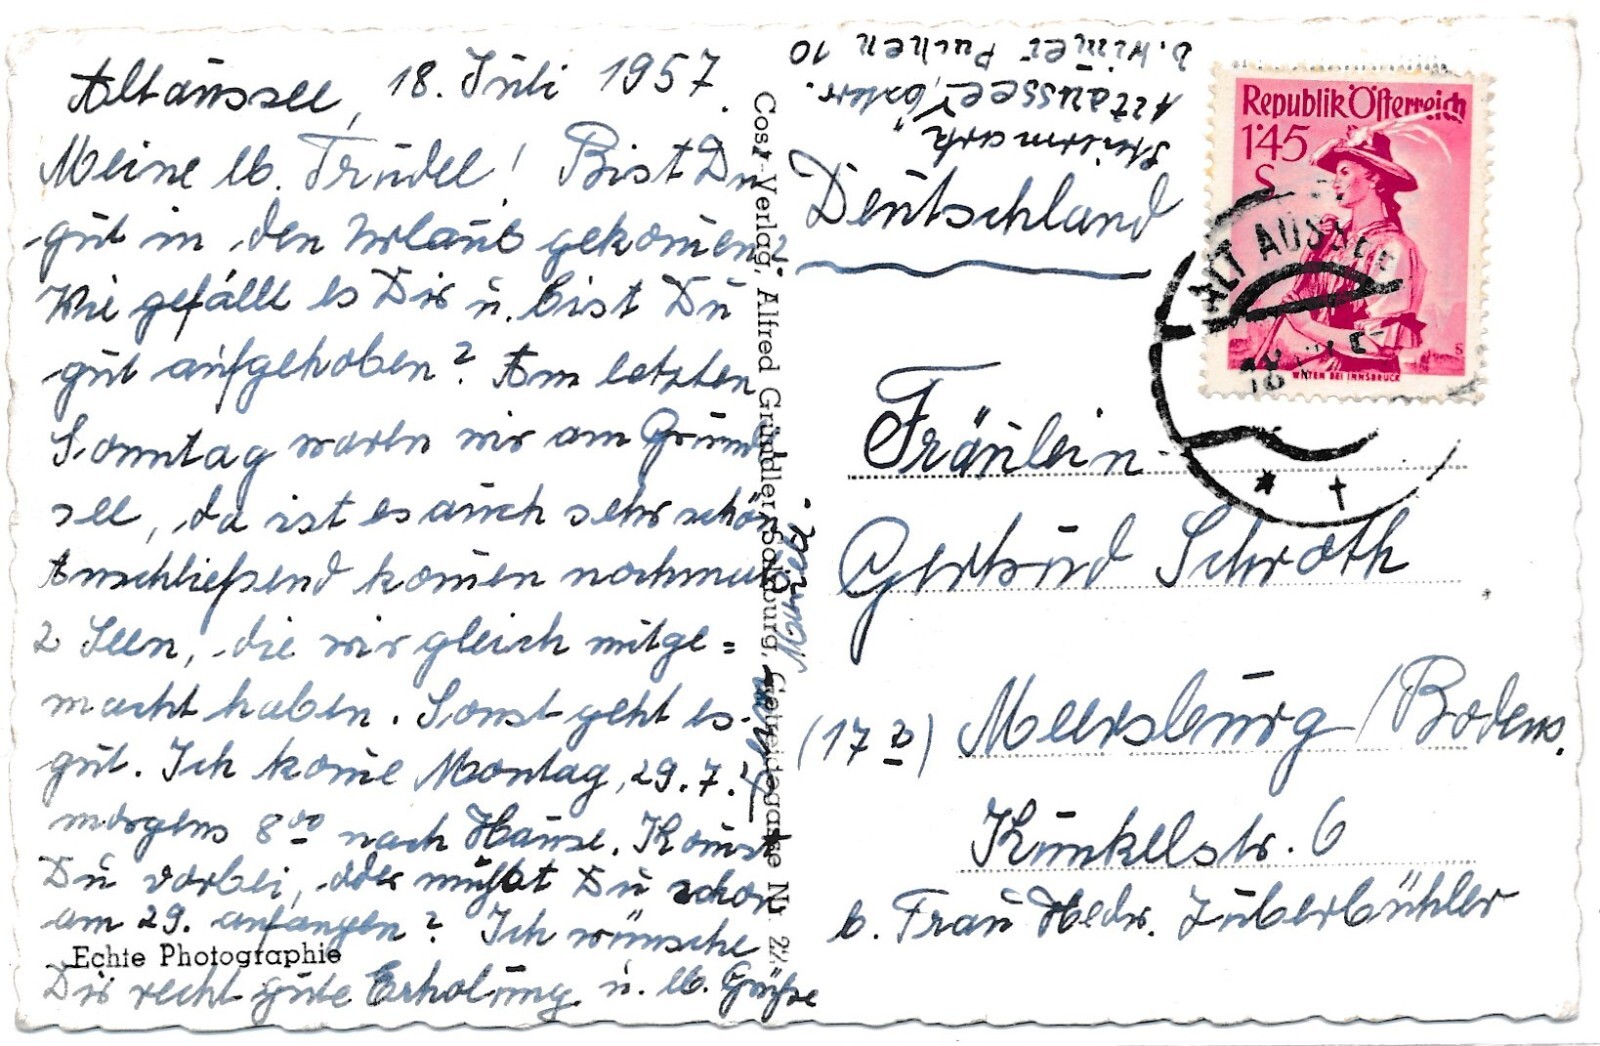 Altaussee, 18. Juli 1957.
Meine lb. Trudel! Bist Du
gut in den Urlaub gekom̄en?
Wie gefällt es Dir u. bist Du
gut aufgehoben? Am letzten
Sonntag waren wir am Grund
see, da ist es auch sehr schön
Anschließend kom̄en nochmal
2 Seen, die wir gleich mitge=
macht haben. Sonst geht es
gut. Ich kom̄e Montag, 29.7.
morgens 8⁰⁰ nach Hause. Kom̄st
Du vorbei, oder mußt Du schon
am 29. anfangen? Ich wünsche
Dir recht gute Erholung u. lb. Grüße
Echte Photographie
Cosy-Verlag, Alfred Gründler, Salzburg, Getreidegasse Nr. 22.
b. Wim̄er Puchen 10
Altaussee, österr.
Steiermark
Deutschland
Republik Österreich
1·45
S
WILTEN BEI INNSBRUCK
ALT AUSSEE
Fräulein
Gertrud Schroth
(17b) Meersburg/Bodens.
Kunkelstr. 6
b. Frau Hedw. Zuberbühler